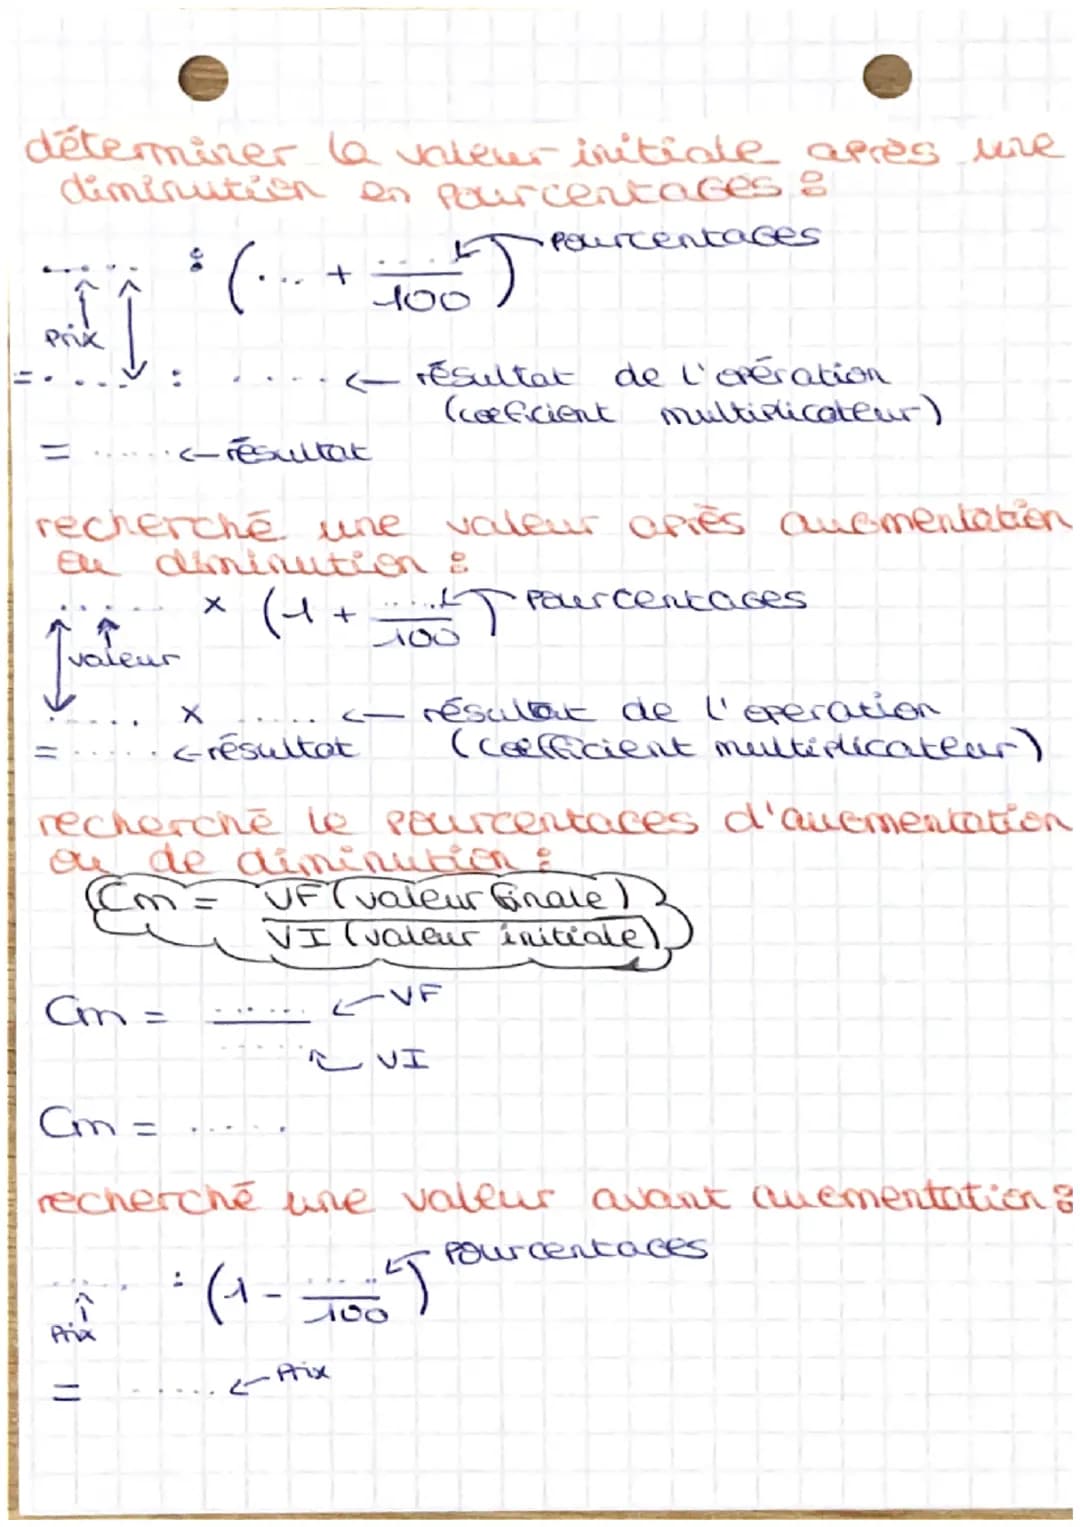 déterminer la valeur initiale après une
diminution en pourcentages :
..... : (... + ..../100) pourcentages
Prix
= ..... : ..... ← résultat de l'opération
(coeficient multiplicateur)
= ..... ← résultat
recherché une valeur après augmentation
ou diminution :
..... x (1 + ...../100) Pourcentages
valeur
..... x ..... ← résultat de l'operation
= ..... ← résultat (coefficient multiplicateur)
recherché le pourcentages d'augmentation
ou de diminution :
Cm = VF (valeur finale)
VI (valeur initiale)
Cm = ..... ← VF
..... VI
Cm = .....
recherché une valeur avant augmentation :
..... : (1 - ...../100) Pourcentages
Prix
= ..... ← Prix